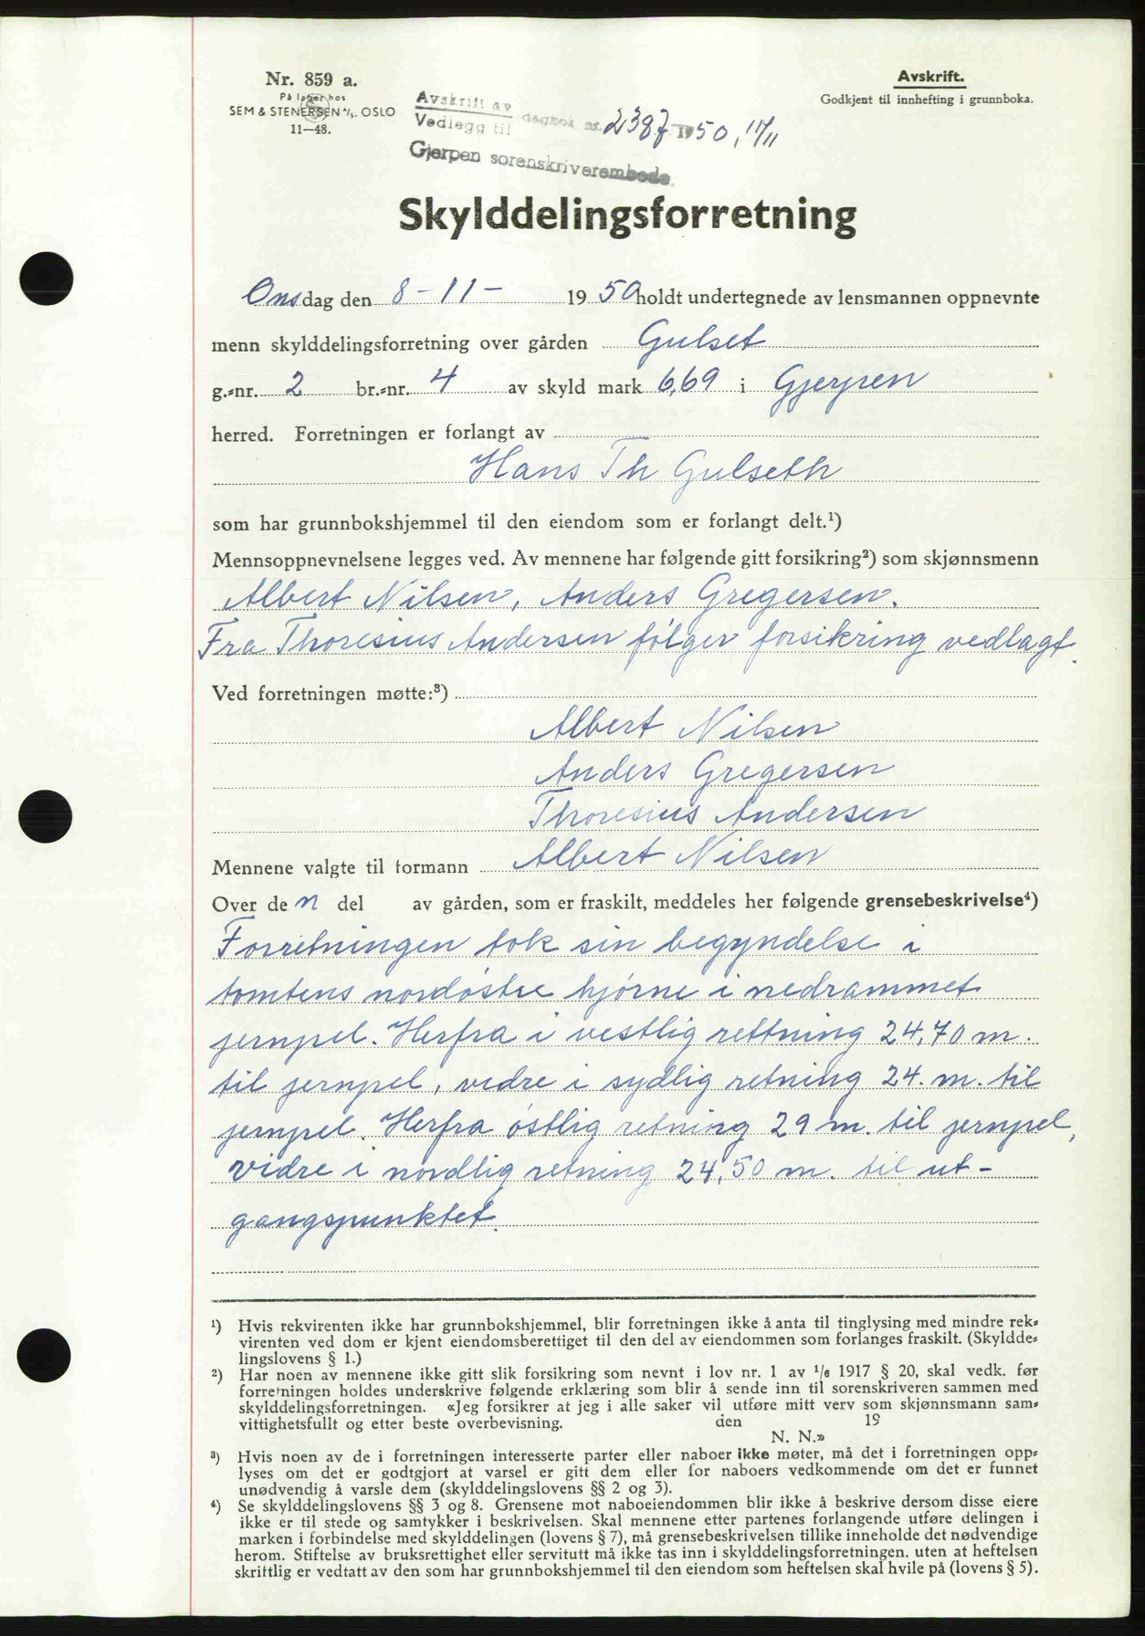 Nr. 859 a.
På lager hos
SEM & STENERSEN A/S. OSLO
11—48.
Avskrift av
Vedlegg til dagbok nr. 2387 1950, 17/11
Gjerpen sorenskriverembede.
Avskrift.
Godkjent til innhefting i grunnboka.
Skylddelingsforretning
Onsdag den 8-11- 1950 holdt undertegnede av lensmannen oppnevnte
menn skylddelingsforretning over gården Gulset
g.-nr. 2 br.-nr. 4 av skyld mark 6,69 i Gjerpen
herred. Forretningen er forlangt av
Hans Th Gulseth
som har grunnbokshjemmel til den eiendom som er forlangt delt.¹)
Mennsoppnevnelsene legges ved. Av mennene har følgende gitt forsikring²) som skjønnsmenn
Albert Nilsen, Anders Gregersen.
Fra Thoresius Andersen følger forsikring vedlagt.
Ved forretningen møtte:³)
Albert Nilsen
Anders Gregersen
Thoresius Andersen
Mennene valgte til formann Albert Nilsen
Over den del av gården, som er fraskilt, meddeles her følgende grensebeskrivelse⁴)
Forretningen tok sin begyndelse i
tomtens nordøstre hjørne i nedrammet
jernpel. Herfra i vestlig rettning 24,70 m.
til jernpel, vidre i sydlig retning 24. m. til
jernpel. Herfra østlig retning 29 m. til jernpel,
vidre i nordlig retning 24,50 m. til ut-
gangspunktet.
¹) Hvis rekvirenten ikke har grunnbokshjemmel, blir forretningen ikke å anta til tinglysing med mindre rek-
virenten ved dom er kjent eiendomsberettiget til den del av eiendommen som forlanges fraskilt. (Skyldde-
lingslovens § 1.)
²) Har noen av mennene ikke gitt slik forsikring som nevnt i lov nr. 1 av 1/6 1917 § 20, skal vedk. før
forretningen holdes underskrive følgende erklæring som blir å sende inn til sorenskriveren sammen med
skylddelingsforretningen. «Jeg forsikrer at jeg i alle saker vil utføre mitt verv som skjønnsmann sam-
vittighetsfullt og etter beste overbevisning. den 19
N. N.»
³) Hvis noen av de i forretningen interesserte parter eller naboer ikke møter, må det i forretningen opp-
lyses om det er godtgjort at varsel er gitt dem eller for naboers vedkommende om det er funnet
unødvendig å varsle dem (skylddelingslovens §§ 2 og 3).
⁴) Se skylddelingslovens §§ 3 og 8. Grensene mot naboeiendommen blir ikke å beskrive dersom disse eiere
ikke er til stede og samtykker i beskrivelsen. Skal mennene etter partenes forlangende utføre delingen i
marken i forbindelse med skylddelingen (lovens § 7), må grensebeskrivelsen tillike inneholde det nødvendige
herom. Stiftelse av bruksrettighet eller servitutt må ikke tas inn i skylddelingsforretningen. uten at heftelsen
skriftlig er vedtatt av den som har grunnbokshjemmel til den eiendom som heftelsen skal hvile på (lovens § 5).